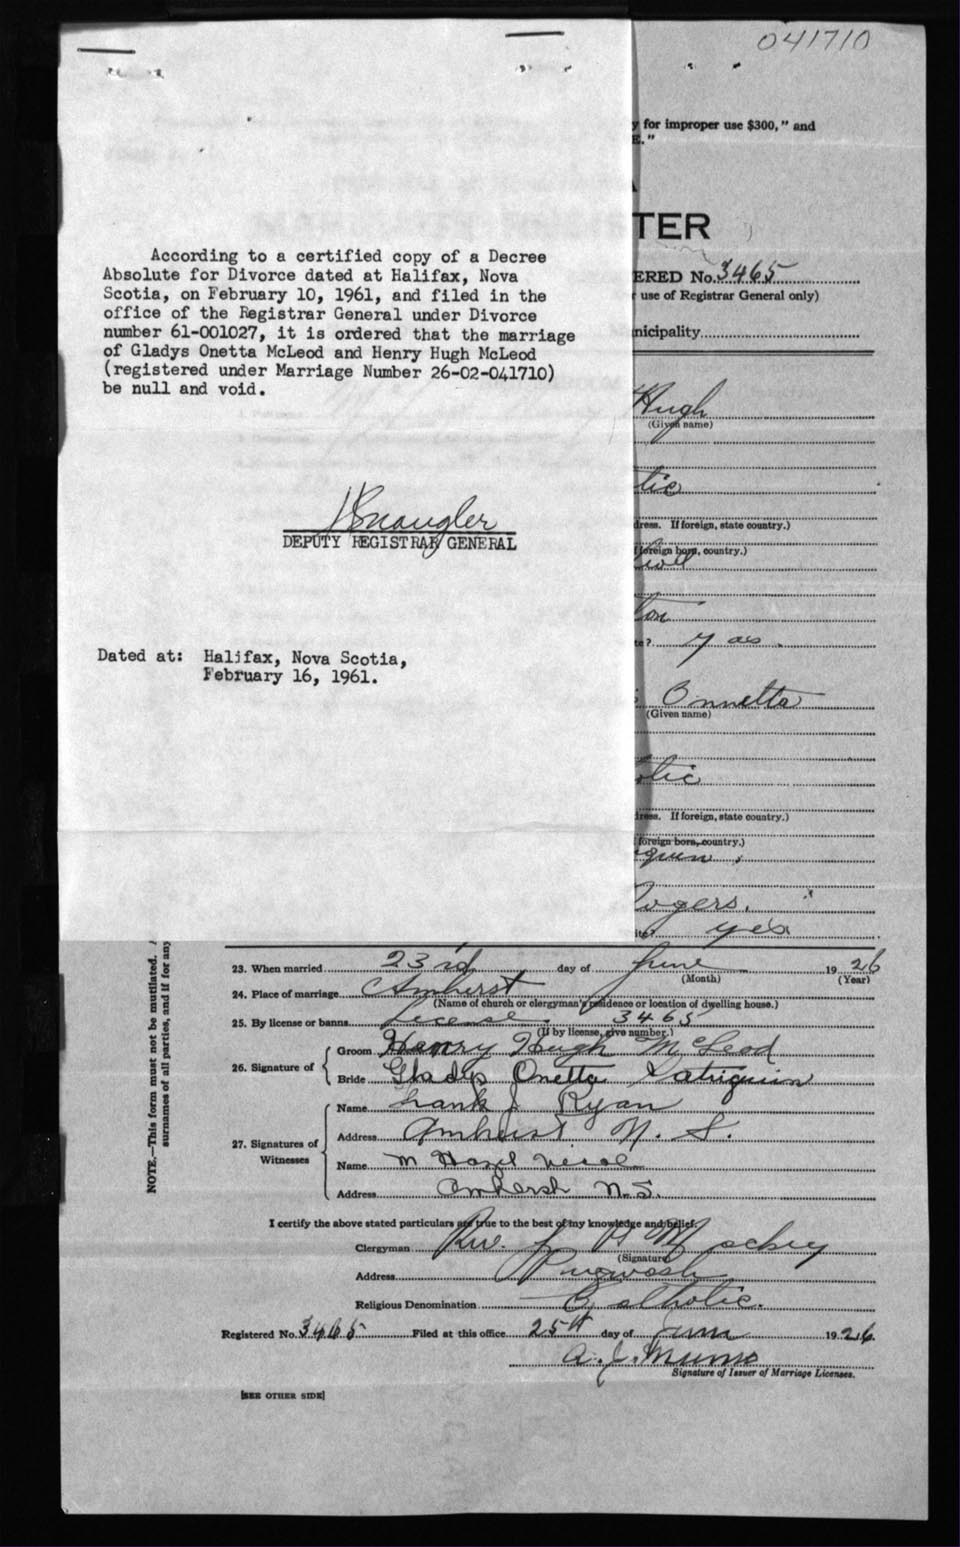 041710
y for improper use $300," and
E."
TER
ERED No. 3465
use of Registrar General only)
nicipality
According to a certified copy of a Decree
Absolute for Divorce dated at Halifax, Nova
Scotia, on February 10, 1961, and filed in the
office of the Registrar General under Divorce
number 61-001027, it is ordered that the marriage
of Gladys Onetta McLeod and Henry Hugh McLeod
(registered under Marriage Number 26-02-041710)
be null and void.
DEPUTY REGISTRAR GENERAL
Dated at: Halifax, Nova Scotia,
February 16, 1961.
Hugh
(Given name)
tic
dress. If foreign, state country.)
foreign born, country.)
ton
te? yes
Onnetta
(Given name)
olic
dress. If foreign, state country.)
foreign born, country.)
quin
Rogers.
ite? yes
NOTE.—This form must not be mutilated.
surnames of all parties, and if for any
23. When married 23rd day of June 1926
(Month) (Year)
24. Place of marriage Amherst
(Name of church or clergyman's residence or location of dwelling house.)
25. By license or banns License. 3465
(If by license, give number.)
26. Signature of
Groom Henry Hugh McLeod
Bride Gladys Onetta Patriquin
27. Signatures of Witnesses
Name Frank J Ryan
Address Amherst N. S.
Name M Hazel
Address Amherst N.S.
I certify the above stated particulars are true to the best of my knowledge and belief.
Clergyman Rev.
(Signature)
Address Pugwash
Religious Denomination Catholic.
Registered No. 3465 Filed at this office 25th day of June 1926
A. J. Munro
Signature of Issuer of Marriage Licenses.
[SEE OTHER SIDE]